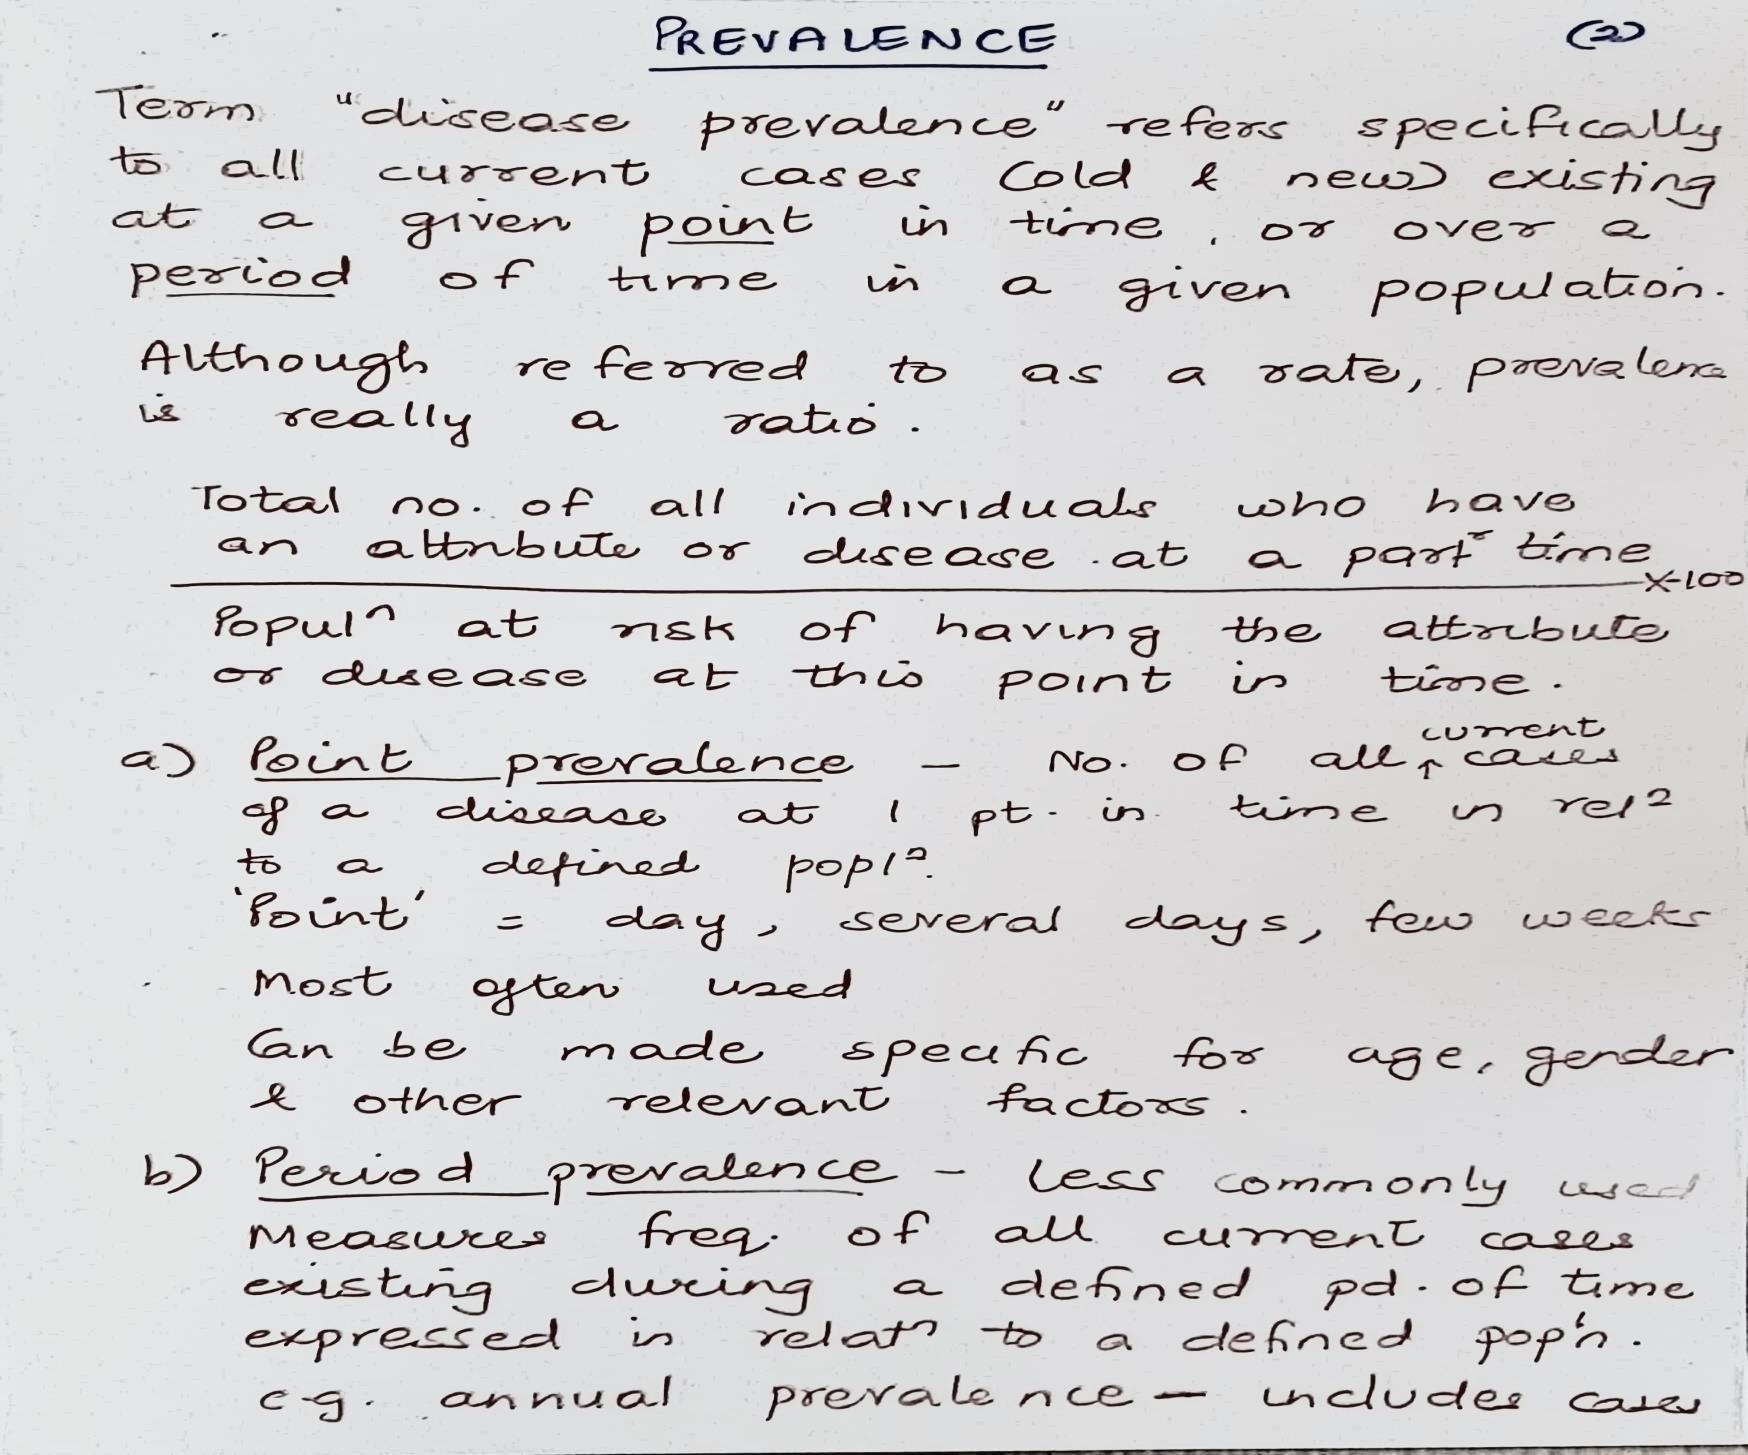 PREVALENCE (2)
Term "disease prevalence" refers specifically
to all current cases (old & new) existing
at a given point in time, or over a
period of time in a given population.
Although referred to as a rate, prevalence
is really a ratio.
Total no. of all individuals who have
an attribute or disease at a partr time
x 100
Populn at risk of having the attribute
or disease at this point in time.
a) Point prevalence - No. of all current cases
of a disease at 1 pt. in time in reln
to a defined popln.
'Point' = day, several days, few weeks
Most often used
Can be made specific for age, gender
& other relevant factors.
b) Period prevalence - Less commonly used
Measures freq. of all current cases
existing during a defined pd. of time
expressed in relatn to a defined pop'n.
e.g. annual prevalence - includes cases